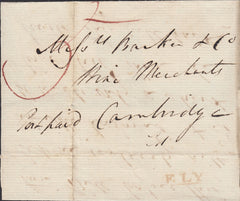 2
Messrs Barker & Co
Wine Merchants
Post paid Cambridge
ELY